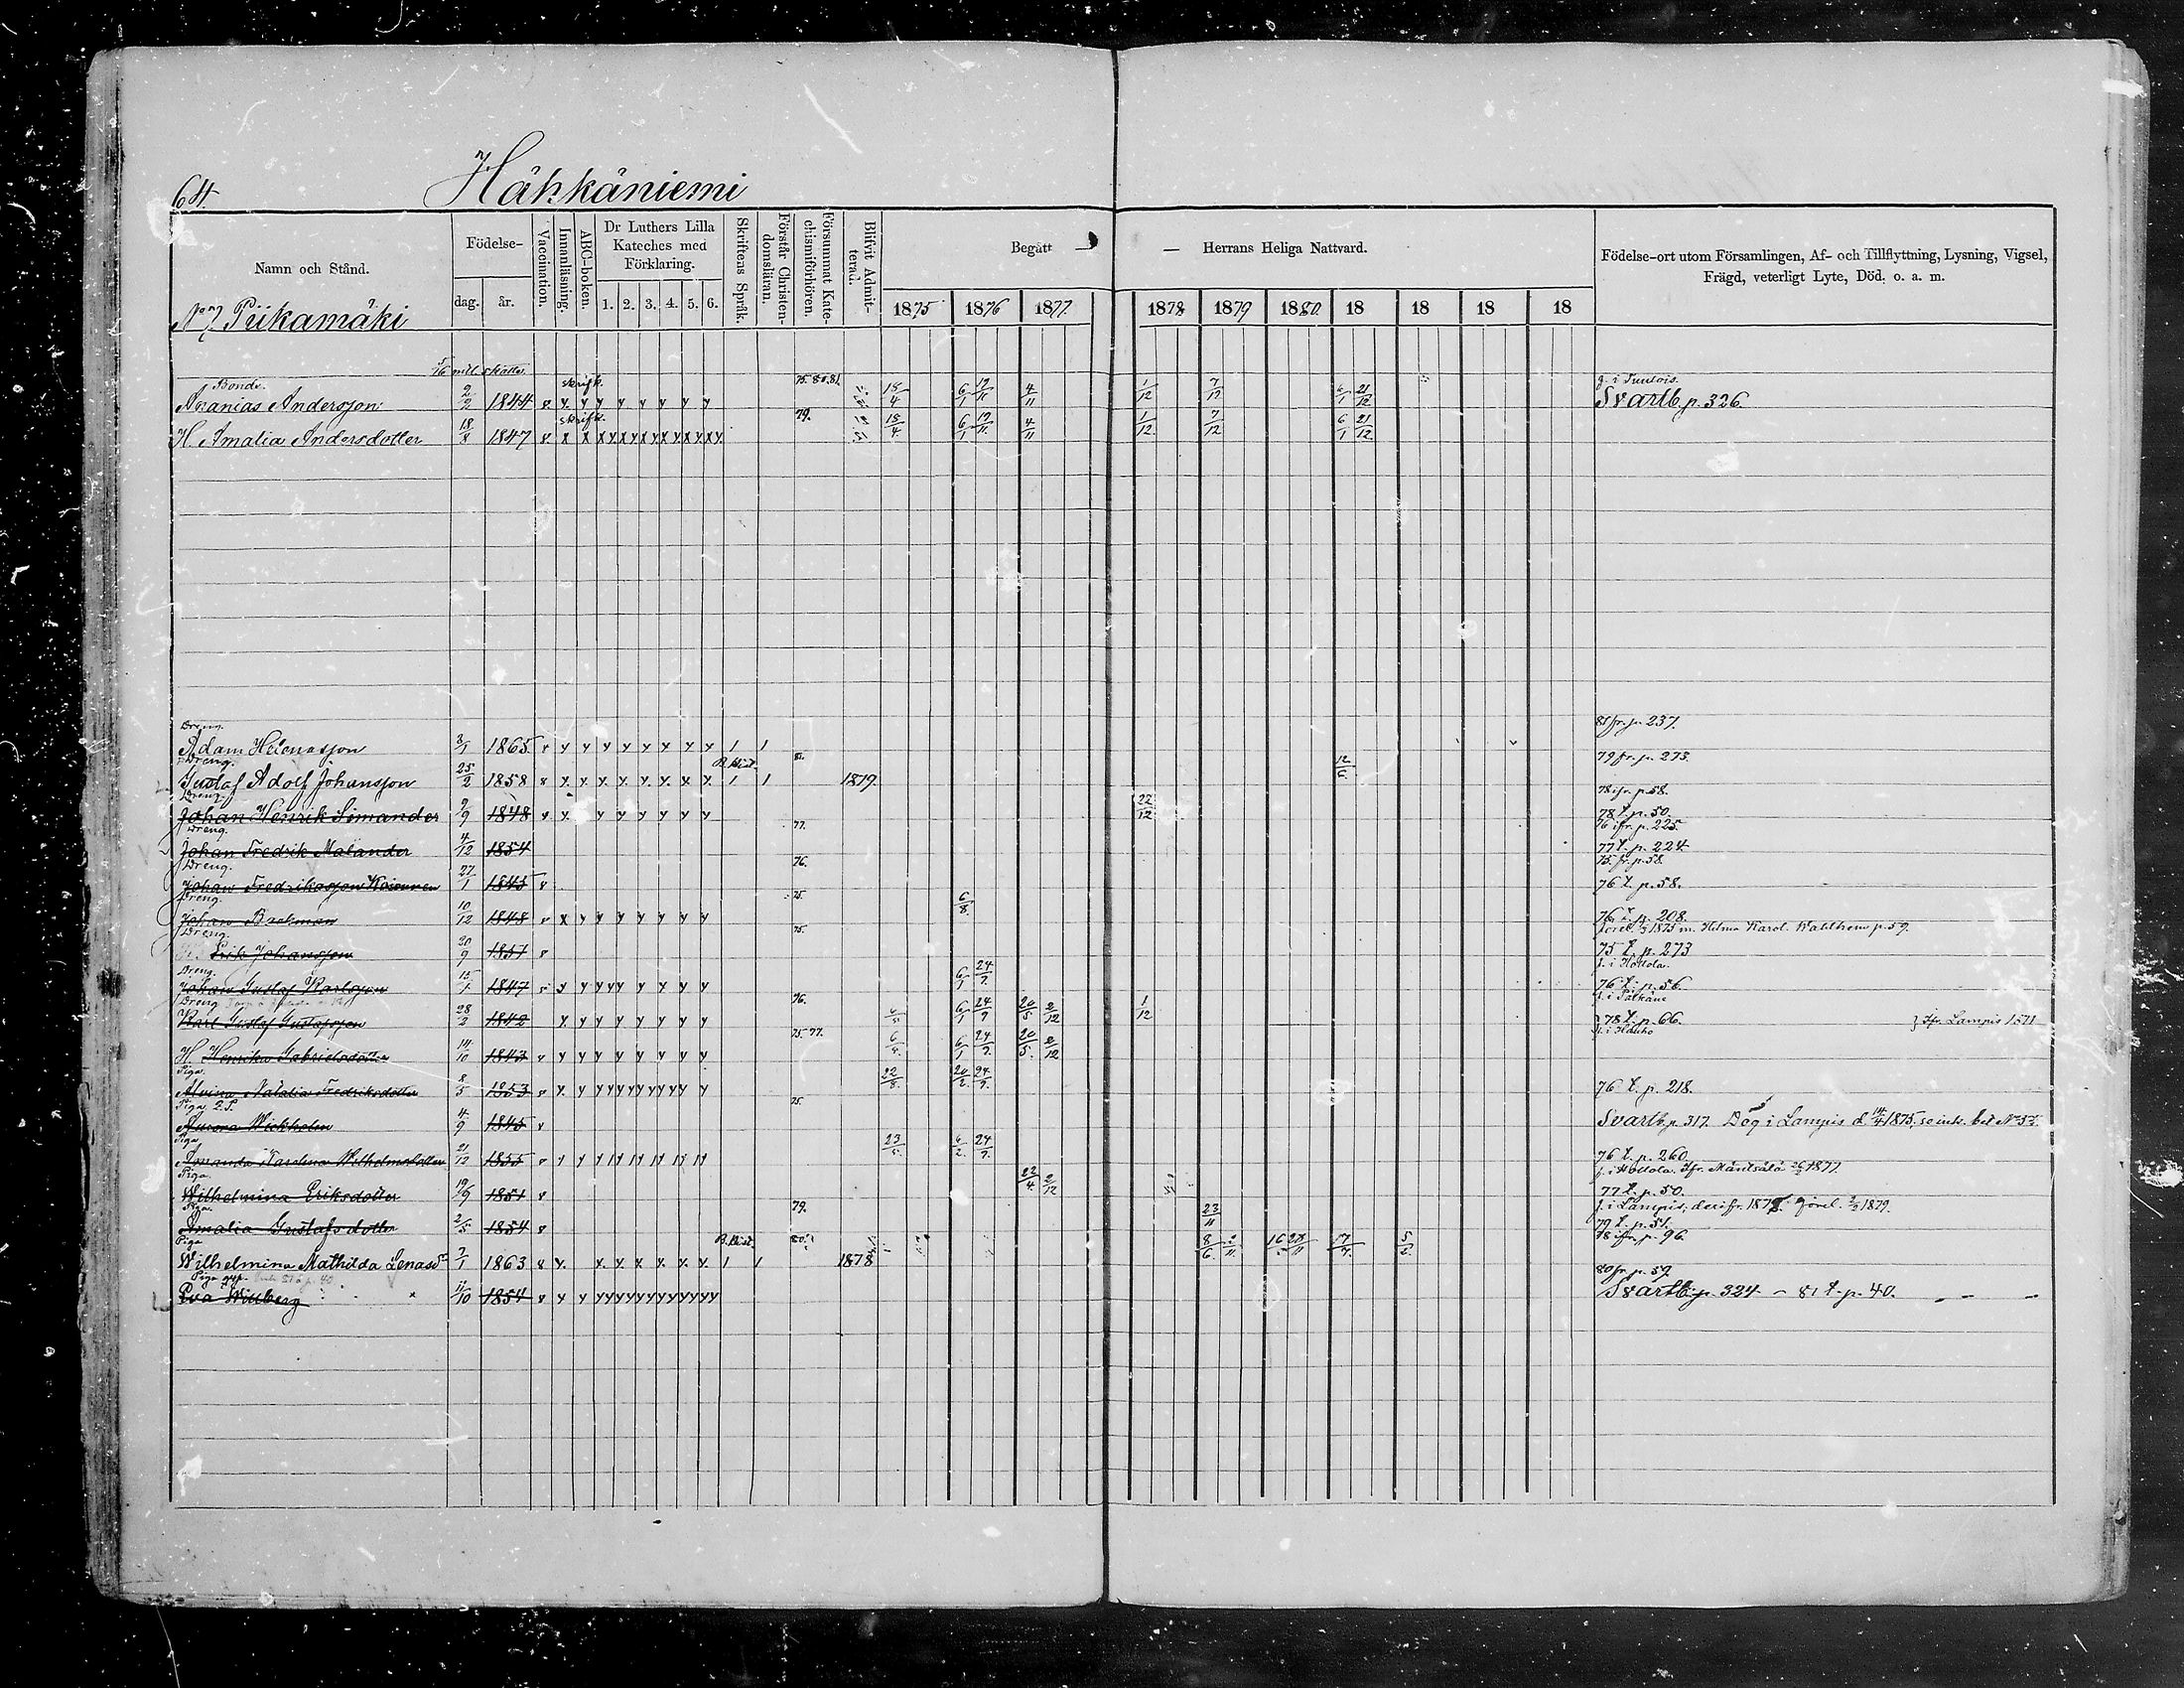 64.
Hähkäniemi
Namn och Stånd.
Födelse-
dag. år.
Vaccination.
Innanläsning.
ABC-boken.
Dr Luthers Lilla Kateches med Förklaring.
1. 2. 3. 4. 5. 6.
Skriftens Språk.
Förstår Christendomsläran.
Försummat Katechismiförhören.
Blifvit Admitterad.
Begått — Herrans Heliga Nattvard.
1875 1876 1877 1878 1879 1880 18 18 18 18
Födelse-ort utom Församlingen, Af- och Tillflyttning, Lysning, Vigsel,
Frägd, veterligt Lyte, Död. o. a. m.
No 7 Piikamäki
5/16 mtl. skatte.
Bonde. skrifk. 75. 80. 81. f. i Tuulois.
Ananias Andersson 2/2 1844 v y y y y y y y y 18/4 6/1 19/11 4/11 1/12 7/12 6/1 21/12 Svartb. p. 326.
skrifk. 79.
H. Amalia Andersdotter 18/8 1847 v x x x y x y x y x y x y x y 18/4 6/1 19/11 4/11 1/12 7/12 6/1 21/12
Dreng. 81 fr. p. 237.
Adam Helenasson 3/1 1865 v y y y y y y y y 1 1
Dreng. 81. 12/6 79 fr. p. 273.
Gustaf Adolf Johansson 25/2 1858 v x x x x x x x x 1 1 1879.
Dreng. 22/12 78 ifr. p. 58.
Johan Henrik Simander 9/9 1848 v y y y y y y y 78 t. p. 50.
Dreng. 77. 76 ifr. p. 225.
Johan Fredrik Malander 4/12 1854 77 t. p. 224.
Dreng. 76. 75. fr. p. 58.
Johan Fredriksson 27/1 1845 v 76 t. p. 58.
Dreng. 75. 6/8.
Johan Backman 10/12 1848 v x y y y y y y y 76 t. p. 208.
Dreng. 75. 1875 m. Helma Karol. Wahlhem p. 59.
Erik Johansson 20/9 1851 v 75 t. p. 273
Dreng. 6/1 24/9. f. i Hollola.
Johan Gustaf Karlsson 15/1 1847 v y y y y y y y y 76 t. p. 56.
Dreng 76. 6/1 24/9 20/5 2/12 1/12 f. i Pälkäne
Karl Gustaf Gustafsson 28/2 1842 y y y y y y y y 78 t. p. 66. } Ifr. Lampis 1871
75. 77. 6/1 24/9. 20/5. 2/12 f. i Hauho
H. Henrika Gabrielsdotter 14/10 1843 v y y y y y y y y
Piga. 22/8. 20/2. 24/9.
Alvina Natalia Fredriksdotter 8/5 1853 v y y y y y y y y y y y 76 t. p. 218.
Piga 75.
Aurora Wickholm 4/9 1845 v Svartb. p. 317. Dog i Lampis d 14/4 1875,
Piga 23/5. 6/2. 24/9.
Amanda Karolina Wilhelmsdotter 21/12 1855 v y y y y y y y y 76 t. p. 260.
Piga 22/4 2/12 f. i Hollola. Ifr. Mäntsälä 1877
Wilhelmina Eriksdotter 19/9 1851 v 77 t. p. 50.
Piga. 79. 23/11 f. i Lampis; derifr. 1878. 1879.
Amalia Gustafsdotter 2/5 1854 v 79 t. p. 51.
Piga 80. 8/6. 2/11. 17/7. 5/2. 78 ifr. p. 96.
Wilhelmina Mathilda Lenasdr 7/1 1863 v y. x. x x x. x. x. 1 1 1878
Piga 80 fr. p. 59.
Eva Willberg 11/10 1854 v y y y y y y y y y y y y y Svartb. p. 324 – 81 t. p. 40.